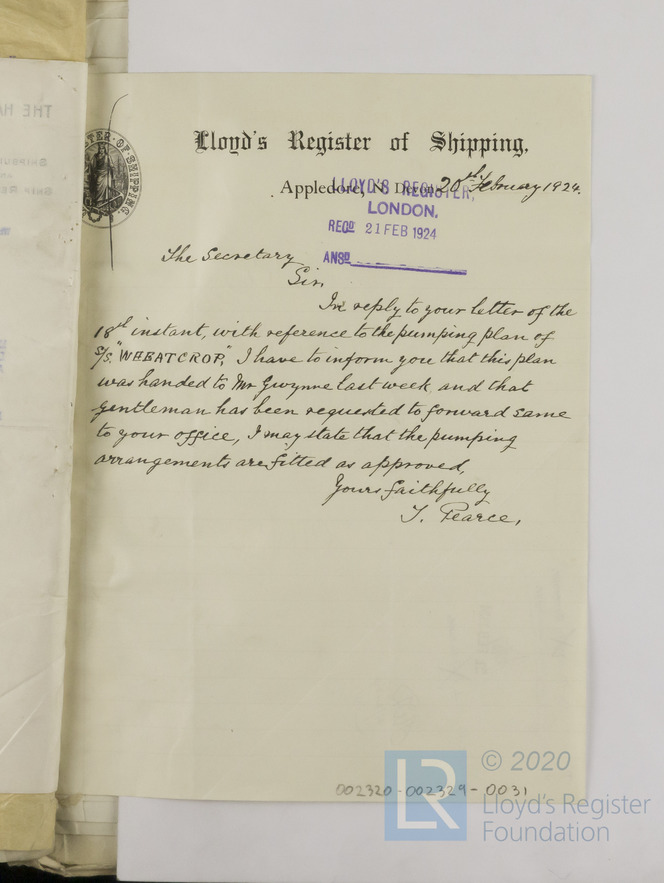 THE HA
TER·OF·SHIPPING
Lloyd's Register of Shipping,
Appledore, N. Devon 20th February 1924.
LLOYD'S REGISTER,
LONDON.
RECD 21 FEB 1924
ANSD
The Secretary
Sir,
In reply to your letter of the
18th instant, with reference to the pumping plan of
S/S. "WHEATCROP," I have to inform you that this plan
was handed to Mr Gwynne last week and that
gentleman has been requested to forward same
to your office, I may state that the pumping
arrangements are fitted as approved,
Yours faithfully
T. Pearce,
002320-002329-0031
LR
© 2020
Lloyd's Register
Foundation